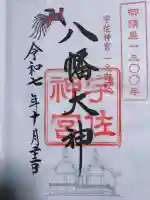 御鎮座一三〇〇年
宇佐神宮 一之御殿
八幡大神
宇佐
神宮
令和七年十月